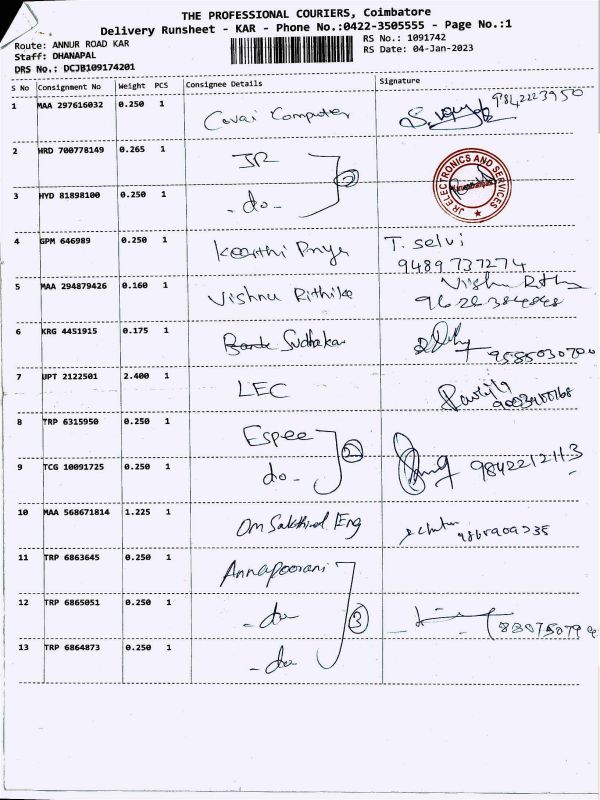 THE PROFESSIONAL COURIERS, Coimbatore
Delivery Runsheet - KAR - Phone No.:0422-3505555 - Page No.:1
Route: ANNUR ROAD KAR
RS No.: 1091742
Staff: DHANAPAL
RS Date: 04-Jan-2023
DRS No.: DCJB109174201
S No Consignment No Weight PCS Consignee Details Signature
1 MAA 297616032 0.250 1 Covai Computer 9842223950
2 HRD 700778149 0.265 1 JR 2
JR ELECTRONICS AND SERVICES
3 HYD 81898100 0.250 1 - do -
4 GPM 646989 0.250 1 Keerthi Priya T. Selvi
9489737274
5 MAA 294879426 0.160 1 Vishnu Rithika
6 KRG 4451915 0.175 1 Sudhakar
7 UPT 2122501 2.400 1 LEC
8 TRP 6315950 0.250 1 Espee 2
9 TCG 10091725 0.250 1 do - 9842212113
10 MAA 568671814 1.225 1 Om Eng
11 TRP 6863645 0.250 1 Annapoorani
12 TRP 6865051 0.250 1 - do 3
13 TRP 6864873 0.250 1 - do